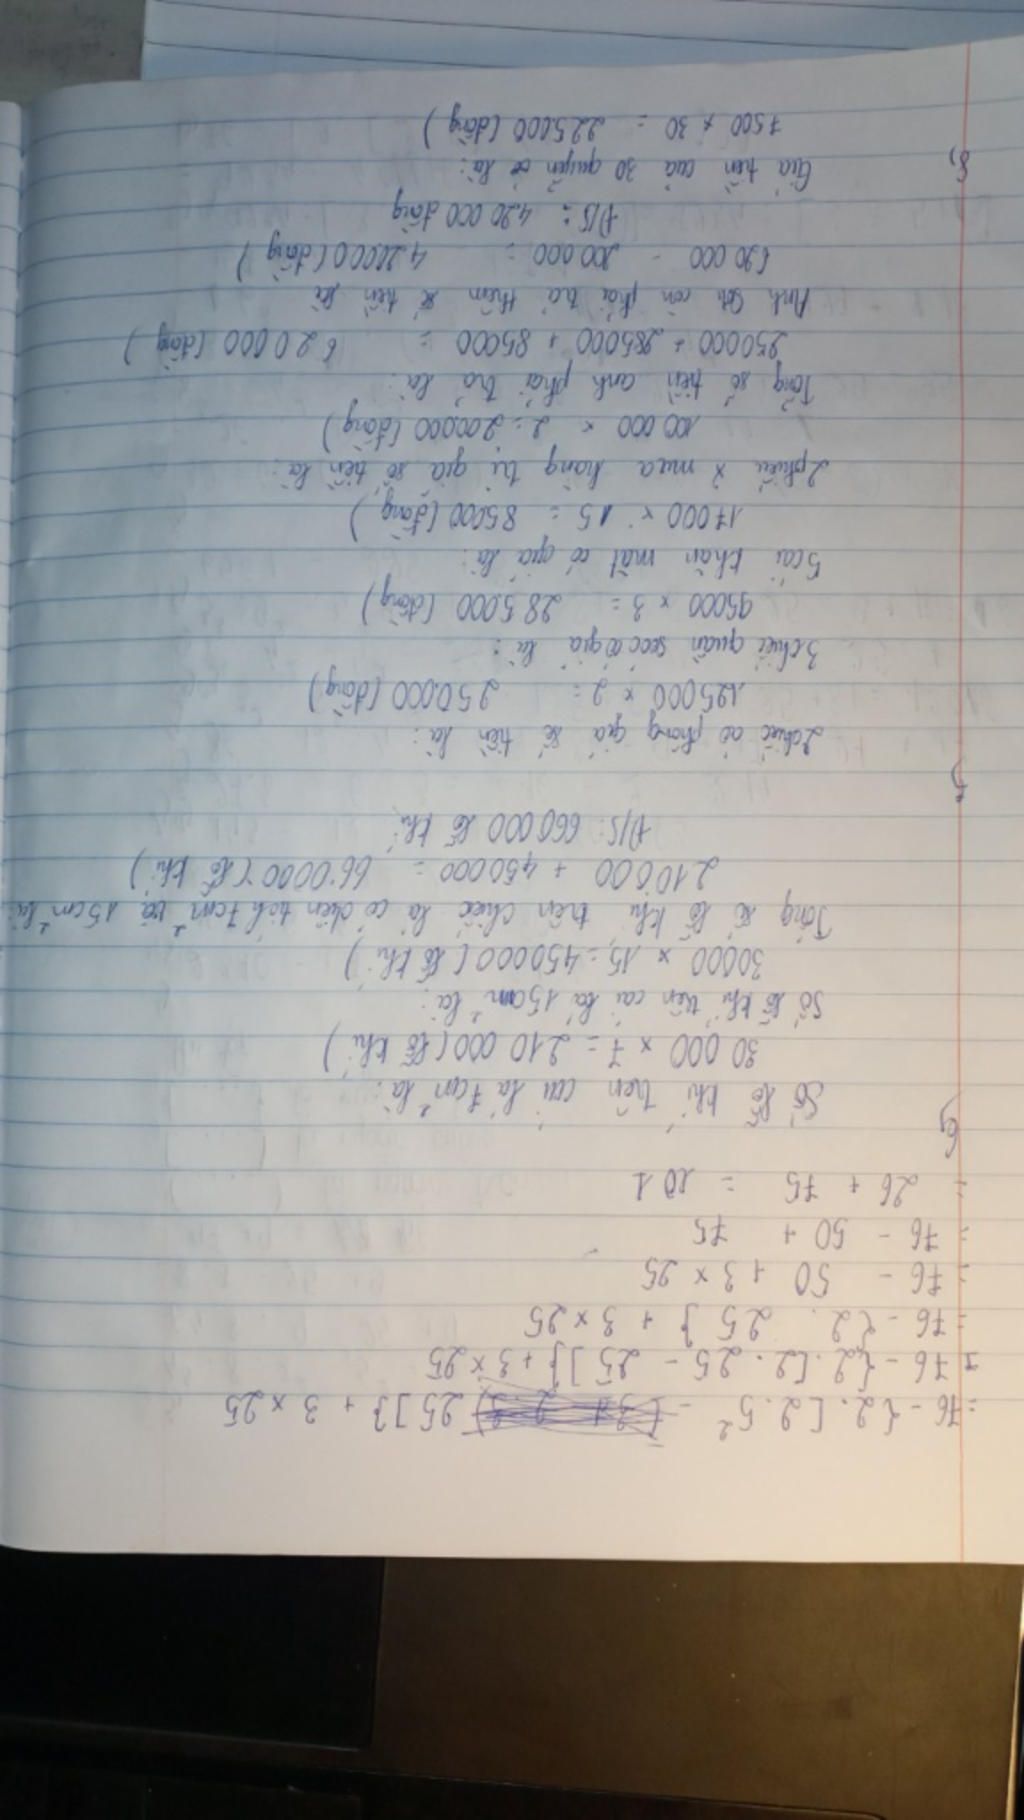 = 76 - {2. [2.5² - 25]} + 3 × 25
= 76 - {2. [2. 25 - 25]} + 3 × 25
= 76 - {2. 25} + 3 × 25
= 76 - 50 + 3 × 25
= 76 - 50 + 75
= 26 + 75 = 101
6)
Số lỗ khí trên cái lá 7cm² là:
30 000 × 7 = 210 000 (lỗ khí)
Số lỗ khí trên cái lá 15cm² là:
30000 × 15 = 450000 (lỗ khí)
Tổng số lỗ khí trên chiếc lá có diện tích 7cm² và 15cm² là:
210000 + 450000 = 660000 (lỗ khí)
Đ/S: 660000 lỗ khí
7
2 chiếc áo phông giá số tiền là:
125000 × 2 = 250000 (đồng)
3 chiếc quần soóc có giá là:
95000 × 3 = 285000 (đồng)
5 cái khăn mặt có giá là:
17000 × 15 = 85000 (đồng)
2 phiếu × mua hàng trị giá số tiền là:
100 000 × 2 = 200000 (đồng)
Tổng số tiền anh phải trả là:
250000 + 285000 + 85000 = 620000 (đồng)
Anh Sơn còn phải trả thêm số tiền là
620 000 - 200 000 = 420000 (đồng)
Đ/S: 420 000 đồng
8)
Giá tiền của 30 quyển vở là:
7500 × 30 = 225000 (đồng)